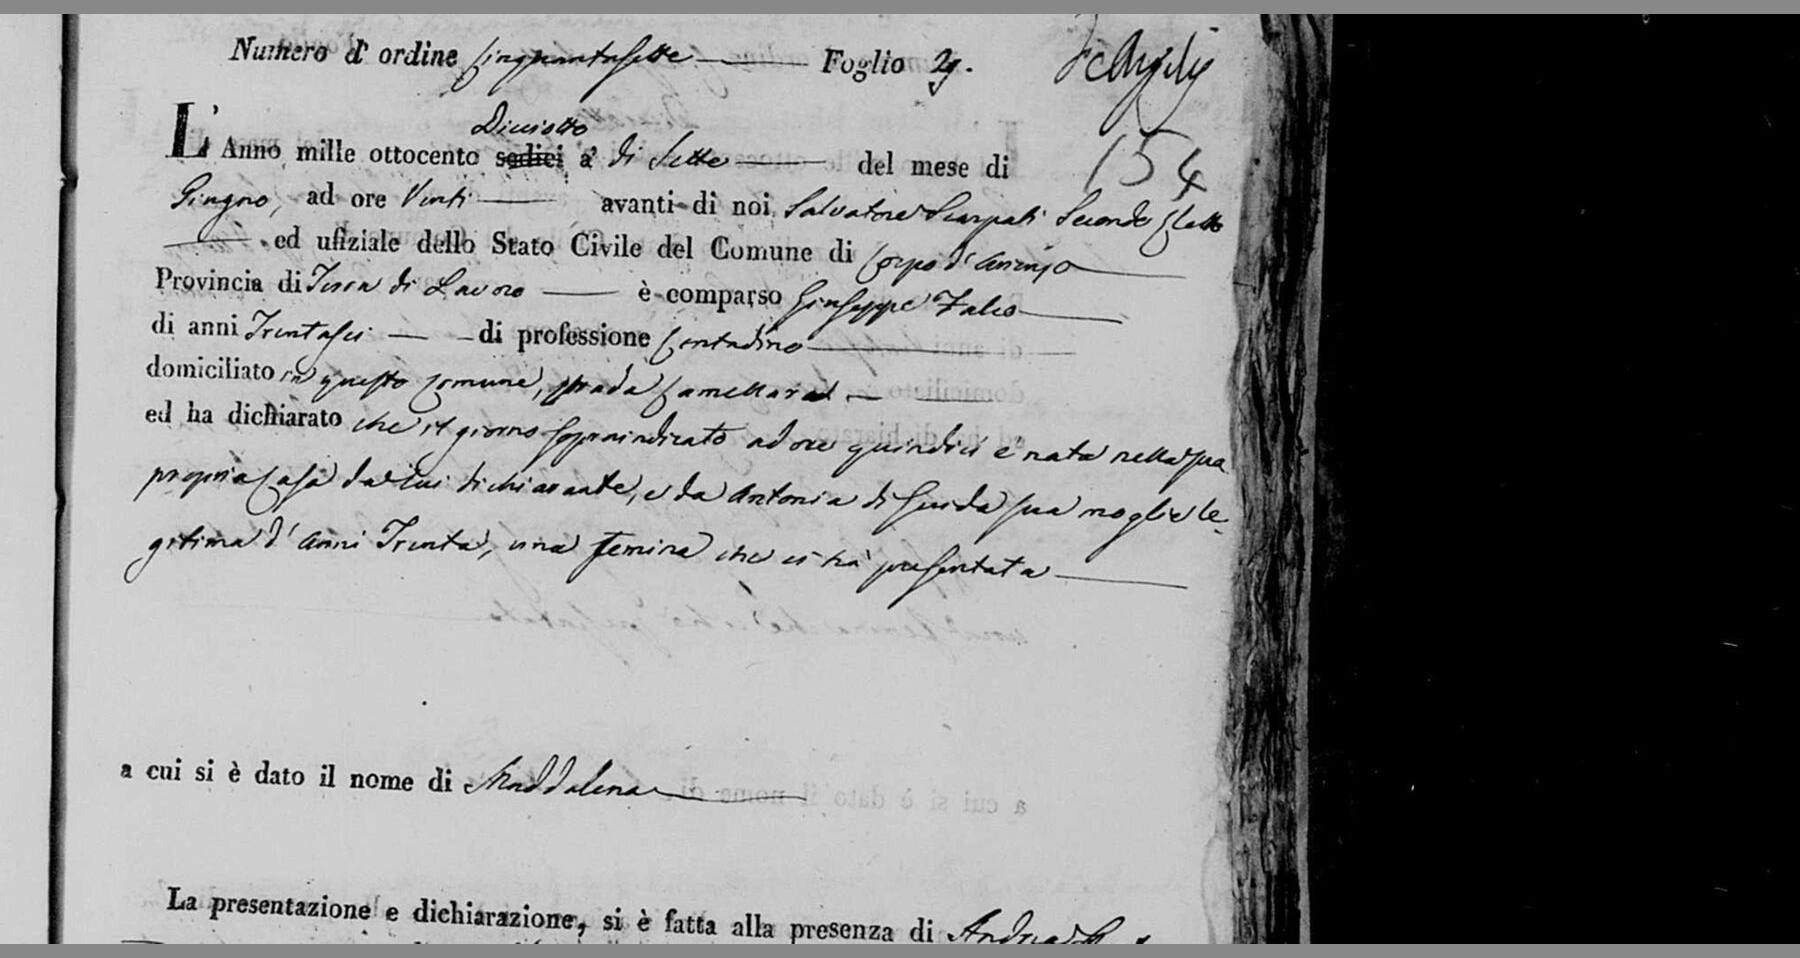 Numero d' ordine Cinquantasette Foglio 29.
154
Diciotto
L' Anno mille ottocento sedici a' di Sette del mese di
Giugno, ad ore Venti avanti di noi Salvatore Scarpati Secondo Eletto
ed ufiziale dello Stato Civile del Comune di Corpo d'
Provincia di Terra di Lavoro è comparso Giuseppe Falco
di anni Trentasei di professione Contadino
domiciliato in questo Comune, strada
ed ha dichiarato che il giorno sopraindicato ad ore quindici è nata nella sua
propria Casa da lui dichiarante, e da Antonia di Guida sua moglie le-
gitima d' anni Trenta, una femina che ci hà presentata
a cui si è dato il nome di Maddalena
La presentazione e dichiarazione, si è fatta alla presenza di Andrea